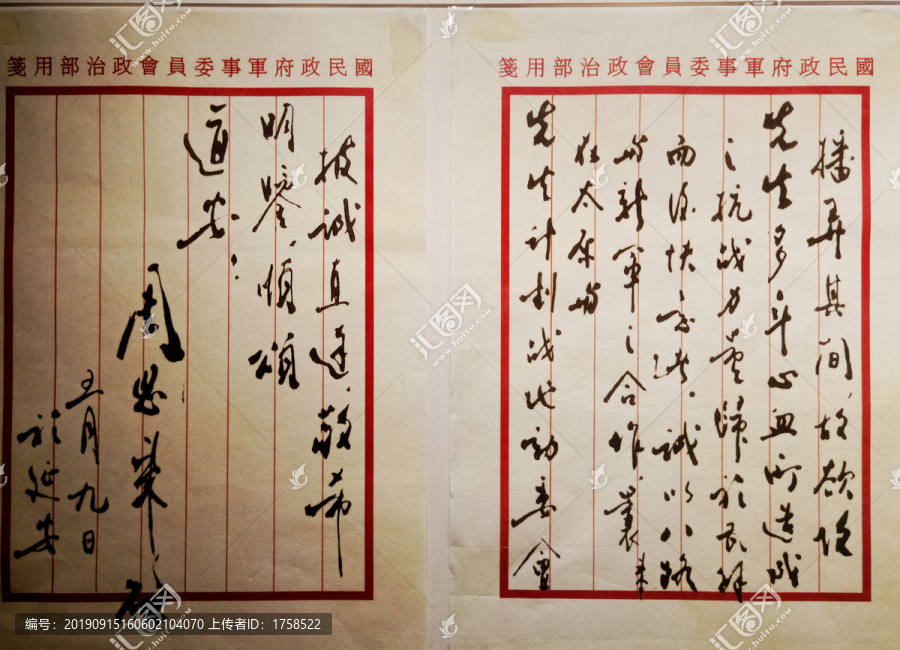 國民政府軍事委員會政治部用箋
播弄其間、故欲
先生多年心血所造成
之抗战力量归於瓦解
而後快 诚以八路
與新軍之合作、曩
在太原與
先生计划战地动委会
國民政府軍事委員會政治部用箋
披诚直達、敬希
明鑒、順頌
道安！
周恩来 启
五月九日
於延安
汇图网
www.huitu.com
编号：20190915160602104070 上传者ID：1758522